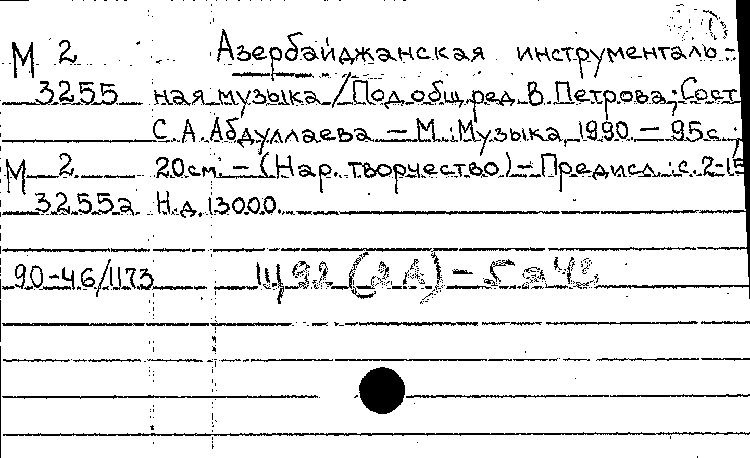 М 2 Азербайджанская инструменталь-
3255 ная музыка / Под общ.ред. В.Петрова; Сост.
С.А.Абдуллаева – М.: Музыка, 1990. – 95с.;
М 2 20см. – (Нар. творчество) – Предисл.: с.2-15
3255а Н.д. 13000.
90-46/1173 Щ92(2А)-5я42